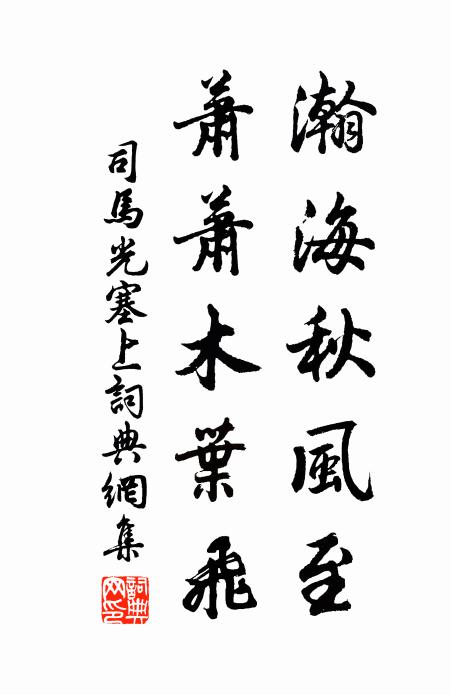 瀚海秋風至
蕭蕭木葉飛
司馬光塞上詞典網集
詞典網印